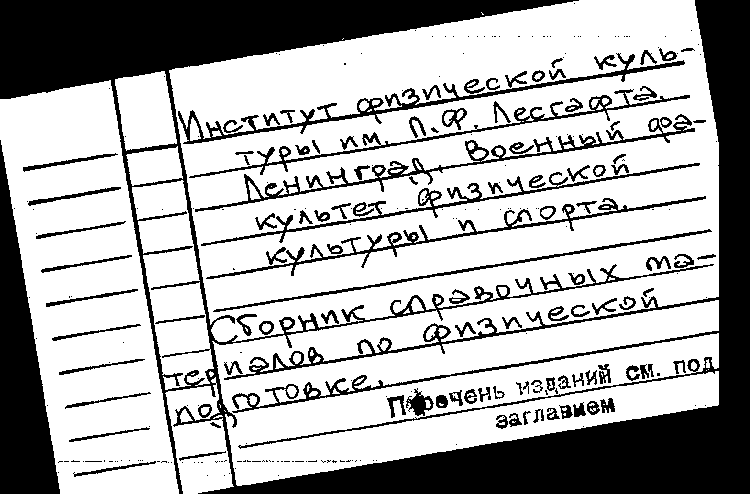 Институт физической куль-
туры им. П.Ф. Лесгафта.
Ленинград. Военный фа-
культет физической
культуры и спорта.
Сборник справочных ма-
териалов по физической
подготовке.
Перечень изданий см. под
заглавием